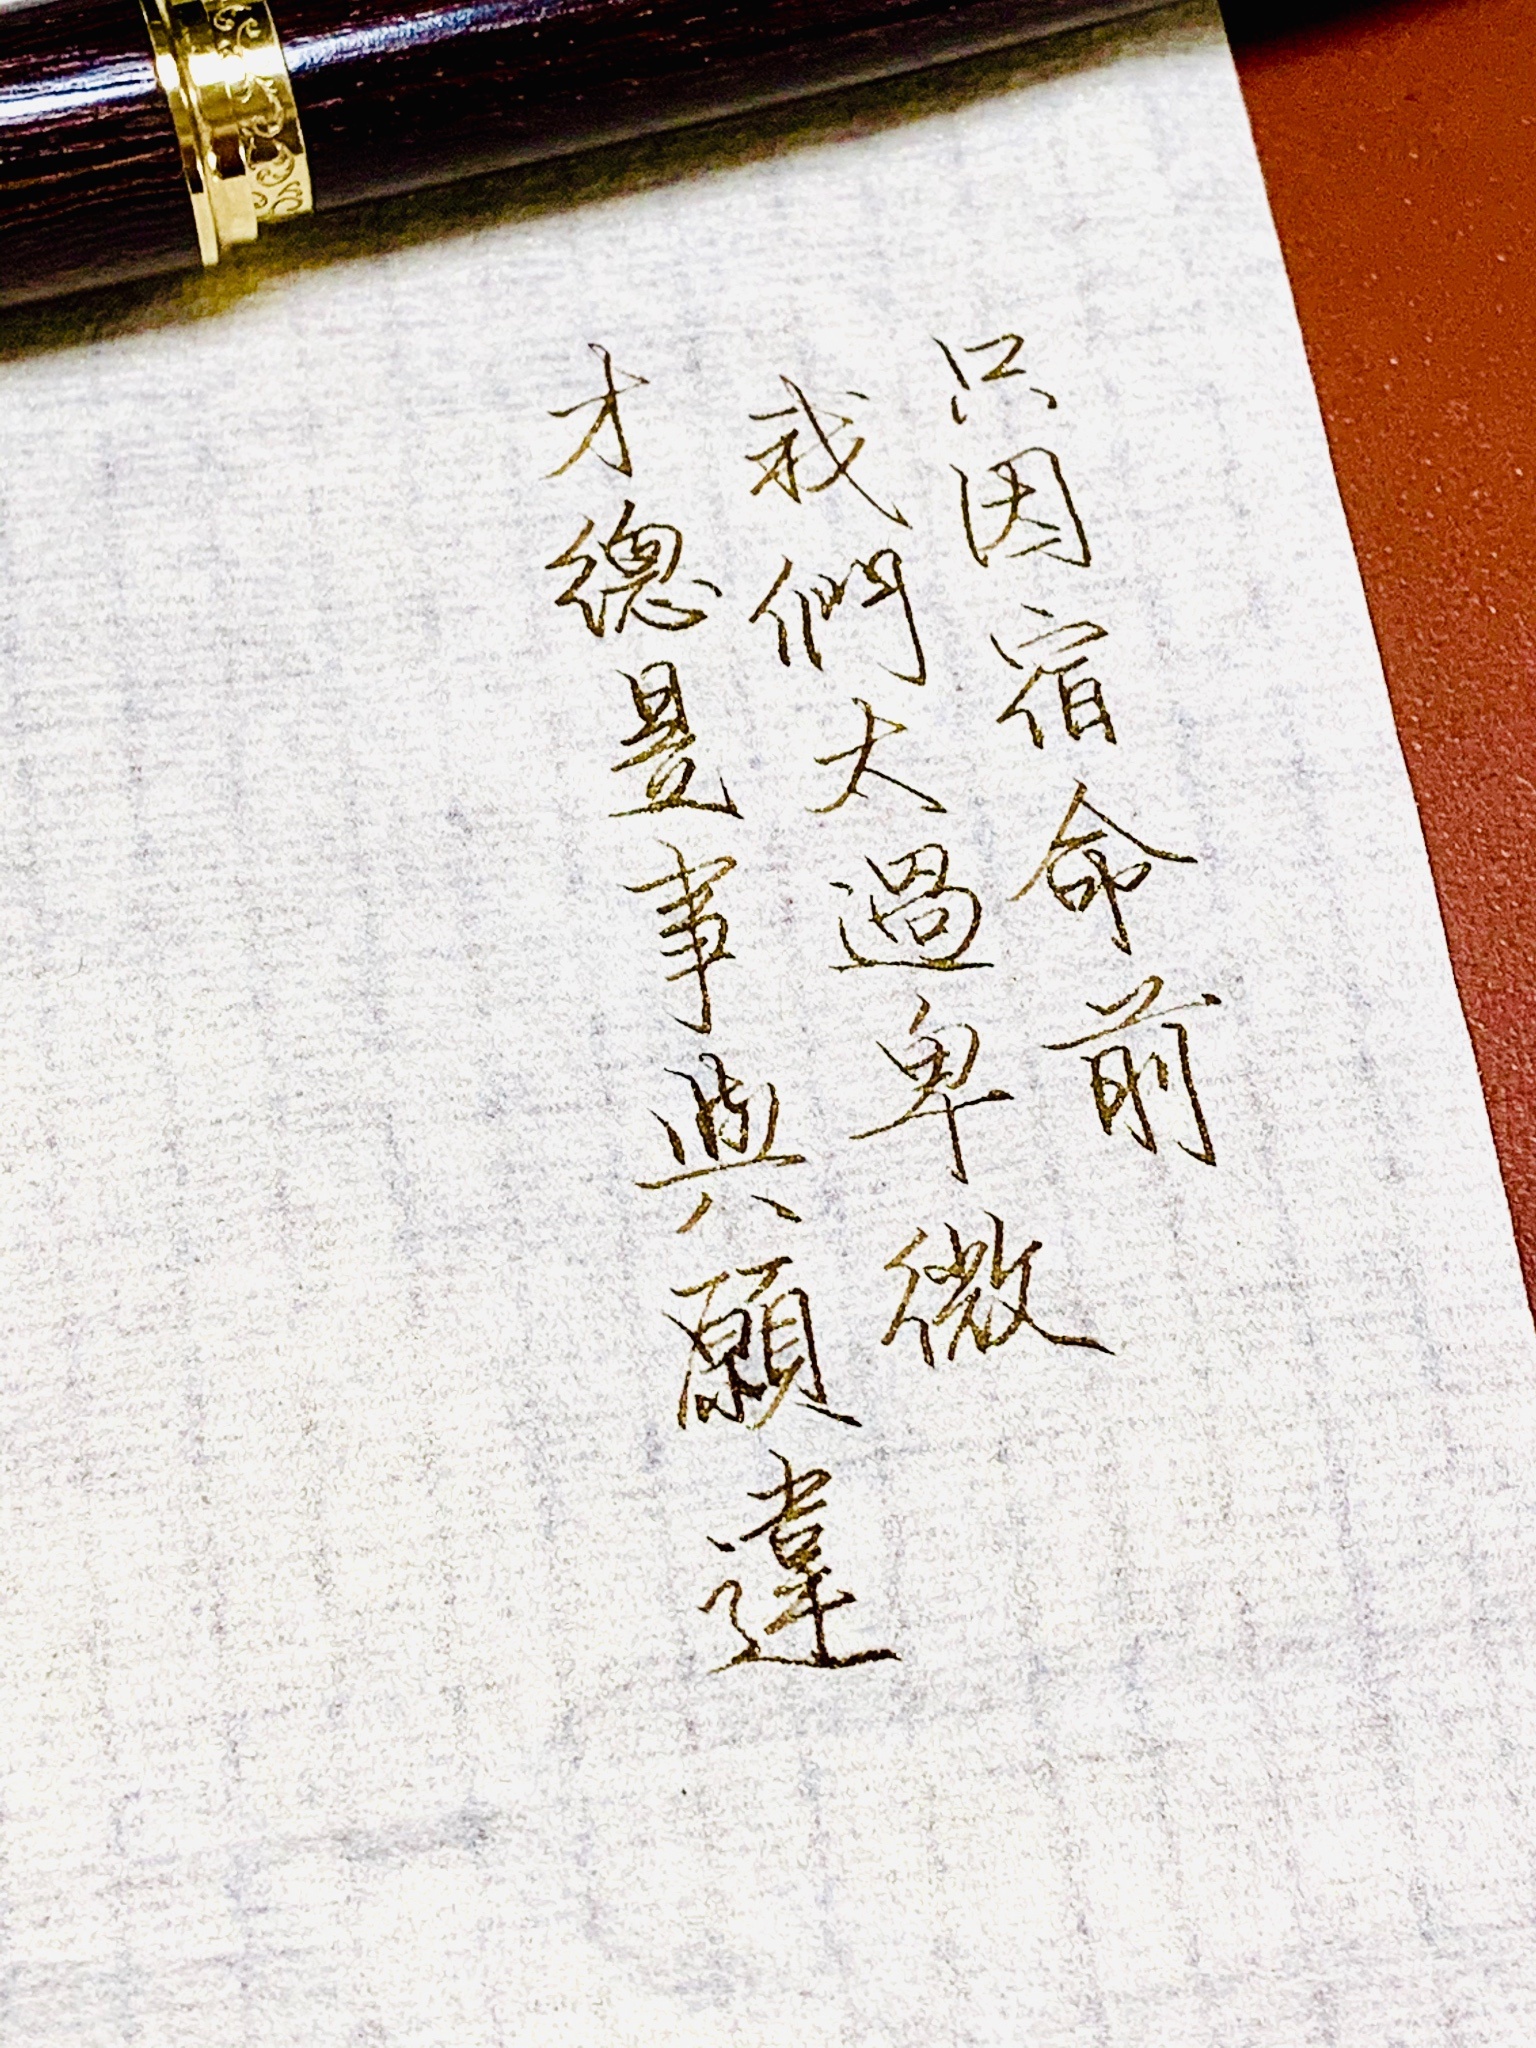 只因宿命前
我們太過卑微
才總是事與願違